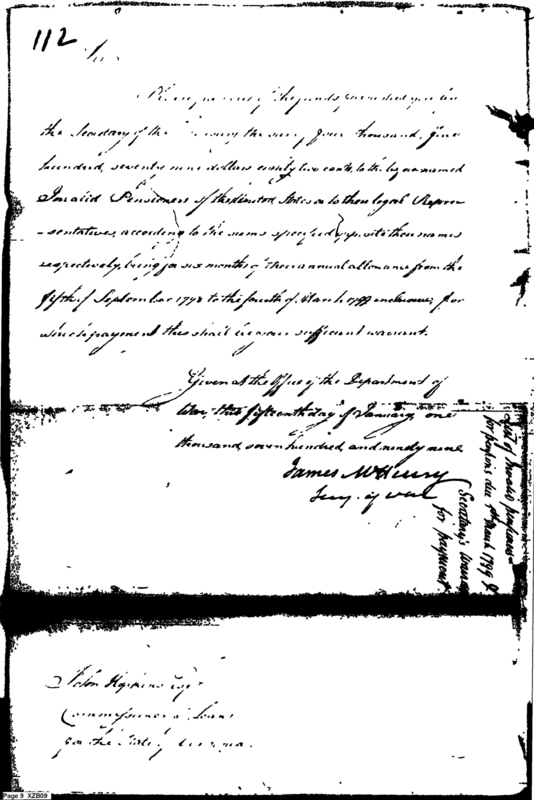 112
Sir
Please pay out of the funds provided you by
the Secretary of the Treasury the sum four thousand, five
hundred, seventy nine dollars eighty two cents, to the by annexed
Invalid Pensioners of the United States or to their legal Repre-
-sentatives, according to the sums specified opposite their names
respectively, being for six months of their annual allowance from the
fifth of September 1798 to the fourth of March 1799 inclusive, for
which payment this shall be your sufficient warrant.
Given at the Office of the Department of
War, this fifteenth day of January, one
thousand seven hundred and ninety nine
James McHenry
Secy. of War
List of Invalid pensioners
for pensions due 4th March 1799 &
Secretary's Warrant
for payment
John Hopkins Esqr
Commissioner of Loans
for the State of Virginia.
Page 9 XZB09